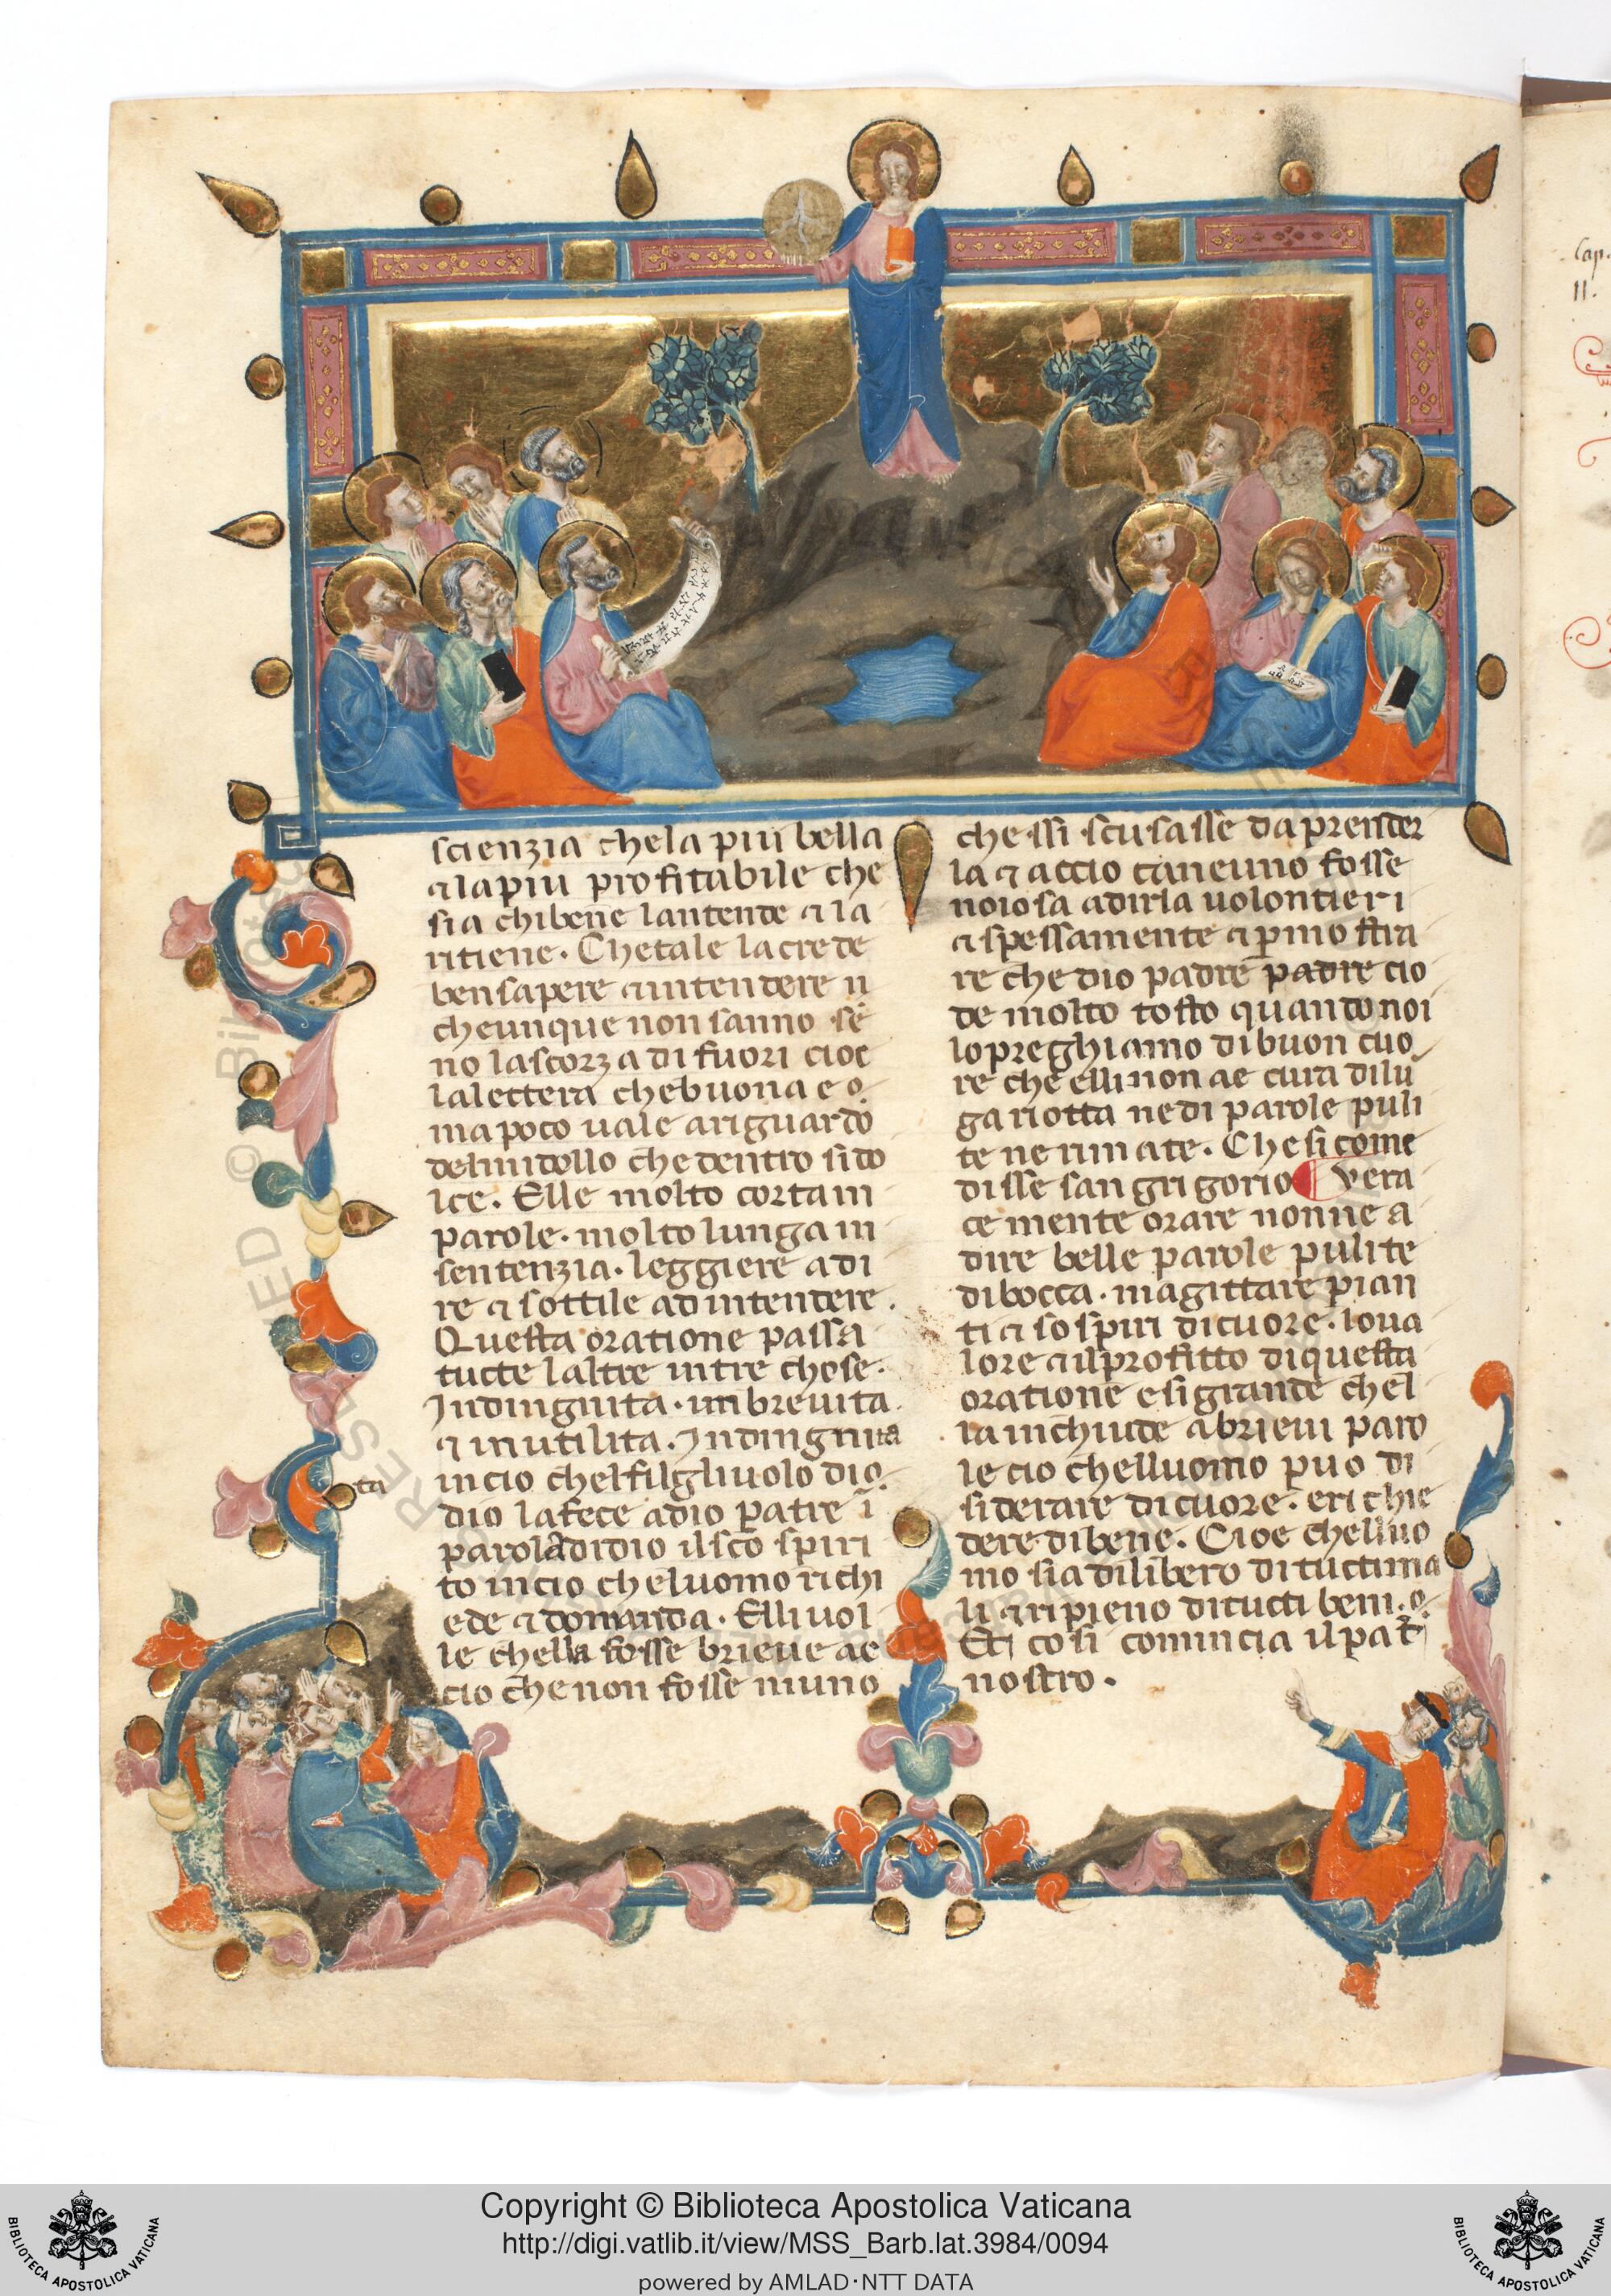 scienzia che la piu bella
⁊ la piu profitabile che
sia chi bene lantende ⁊ la
ritiene. Che tale la crede
ben sapere ⁊ intendere n
che unque non sanno se
no la scorza di fuori cioe
la lettera che buona e
ma poco uale a riguardo
del midollo che dentro si do
lce. Elle molto corta in
parole. molto lunga in
sentenzia. leggiere a di
re ⁊ sottile ad intendere.
Questa oratione passa
tucte laltre in tre chose.
In dingnita. in breuita.
⁊ in utilita. In dingnita
in cio chel filgliuolo dio
ta
dio la fece a dio patre i
parola di dio il sco spiri
to in cio che luomo richi
ede ⁊ domanda. Elli uol
le chella fosse brieue ac
cio che non fosse niuno
che ssi scusasse da prender
la ⁊ accio ca neuno fosse
noiosa a dirla uolontieri
⁊ spessamente ⁊ p mostra
re che dio padre padre cio
de molto tosto quando noi
lo preghiamo di buon cuo
re che elli non ae cura di lu
ga riotta ne di parole puli
te ne rimate. Che si come
disse san grigorio Vera
ce mente orare nonne a
dire belle parole pulite
di bocca. ma gittare pian
ti ⁊ sospiri di cuore. lo ua
lore ⁊ il profitto di questa
oratione e si grande chel
la inchiude a brieui paro
le cio chelluomo puo di
siderare di cuore. e richie
dere di bene. Cioe chelluo
mo sia dilibero di tucti ma
li ⁊ ripieno di tucti beni.
Et cosi comincia il pat
nostro.
Cap.
II.
Copyright © Biblioteca Apostolica Vaticana
http://digi.vatlib.it/view/MSS_Barb.lat.3984/0094
powered by AMLAD·NTT DATA
BIBLIOTECA APOSTOLICA VATICANA
BIBLIOTECA APOSTOLICA VATICANA